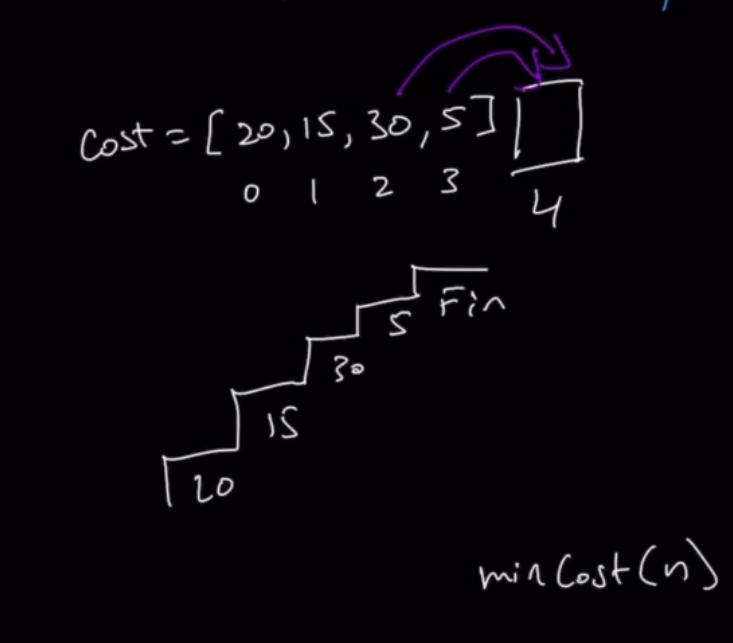 Cost = [20, 15, 30, 5]
0 1 2 3 4
Fin
5
30
15
20
minCost(n)